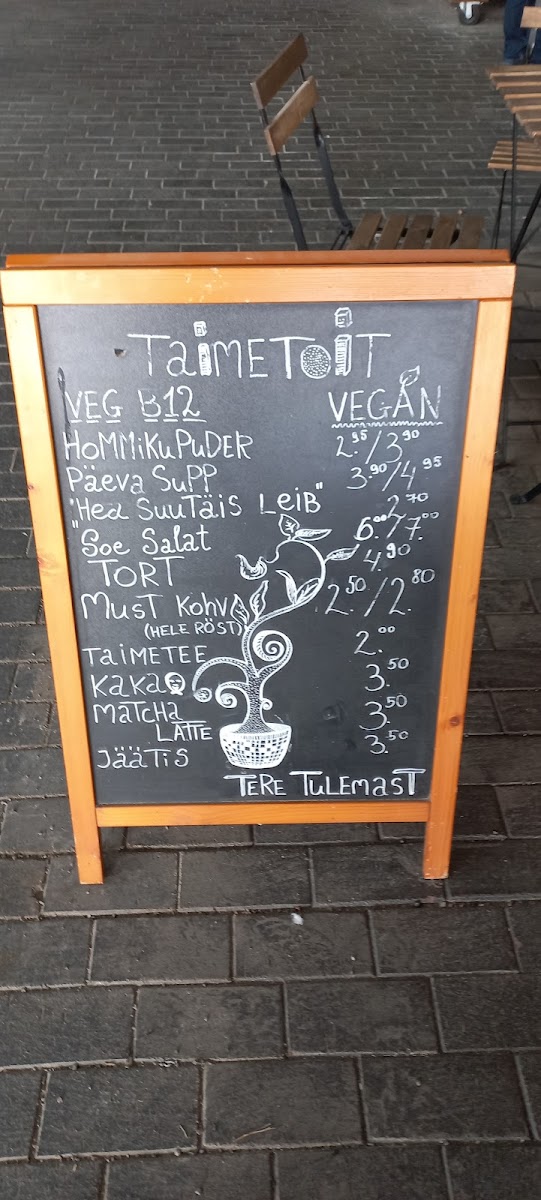 TaiMEToiT
VEG B12 VEGAN
HoMMiKuPuDER 2.95/3.90
Päeva SuPP 3.90/4.95
"Hea SuuTäis Leib" 2.70
"Soe Salat 6.00/7.00
TORT 4.90
MusT Kohv 2.50/2.80
(HELE RÖST)
TaiMETEE 2.00
KaKao 3.50
MaTcHa
LATTE 3.50
JääTiS 3.50
TERE TuLEMasT